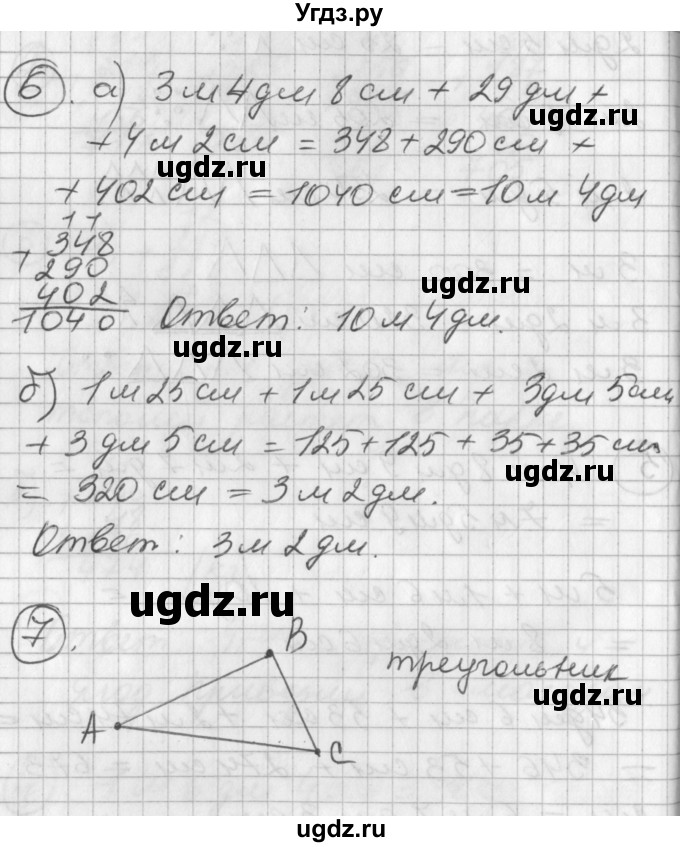 Угдз.ру
6. а) 3 м 4 дм 8 см + 29 дм +
+ 4 м 2 см = 348 + 290 см +
ugdz.ru ugdz.ru
+ 402 см = 1040 см = 10 м 4 дм
ugdz.ru
11
348
+ 290
402
1040
ugdz.ru
Ответ: 10 м 4 дм.
ugdz.ru
б) 1 м 25 см + 1 м 25 см + 3 дм 5 см
+ 3 дм 5 см = 125 + 125 + 35 + 35 см
ugdz.ru
= 320 см = 3 м 2 дм.
Ответ: 3 м 2 дм.
ugdz.ru
ugdz.ru
7.
B
треугольник
ugdz.ru
A
C
ugdz.ru